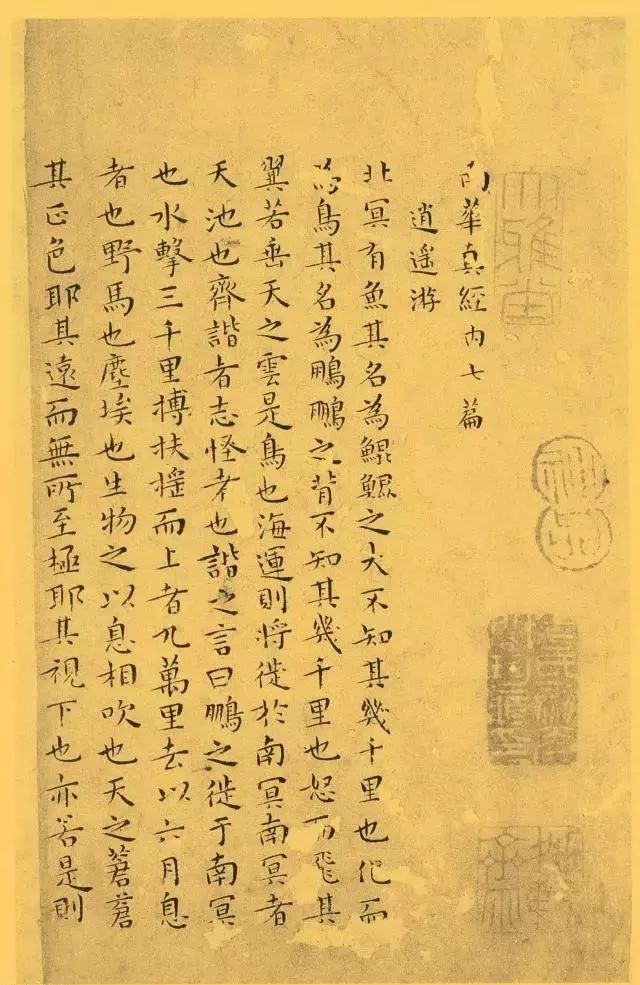 大雅堂
神品
南華真經內七篇
逍遥游
北冥有魚其名為鯤鯤之大不知其幾千里也化而
為鳥其名為鵬鵬之背不知其幾千里也怒而飛其
翼若垂天之雲是鳥也海運則將徙於南冥南冥者
天池也齊諧者志怪者也諧之言曰鵬之徙于南冥
也水擊三千里搏扶摇而上者九萬里去以六月息
者也野馬也塵埃也生物之以息相吹也天之蒼蒼
其正色耶其遠而無所至極耶其視下也亦若是則